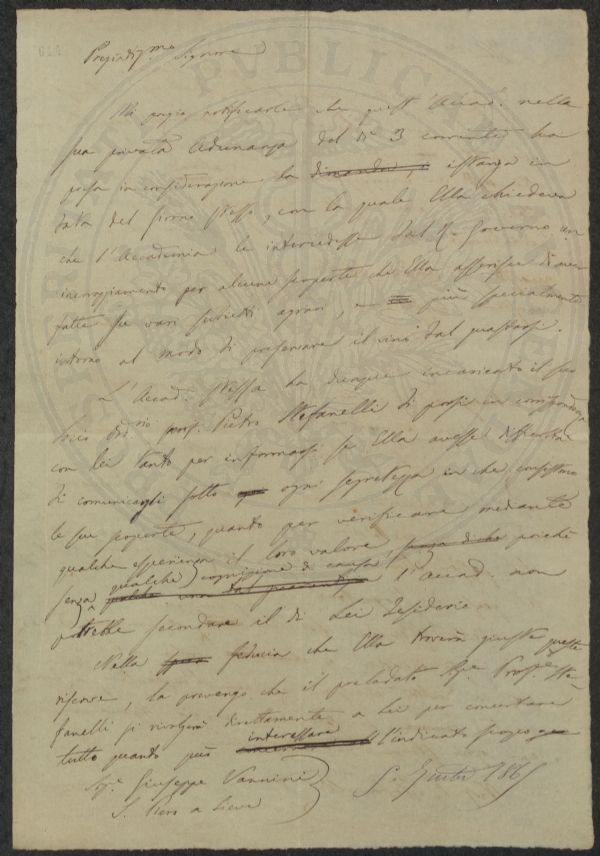 Pregiatiss.mo Signore
Mi pregio notificarle che quest'Accad. nella
sua privata Adunanza del dì 3 corrente ha
presa in considerazione la dimanda, istanza in
data del giorno stesso, con la quale Ella chiedeva
che l'Accademia le intercedesse dal R. Governo un
incoraggiamento per alcune scoperte che Ella asserisce di aver
fatte su vari subietti agrari, e più specialmente
intorno al modo di preservare il vino dal guastarsi.
L'Accad. stessa ha dunque incaricato il suo
Socio ord.rio prof. Pietro Stefanelli di porsi in corrispondenza
con lei tanto per informarsi se Ella avesse difficoltà
di comunicargli sotto ogni segretezza in che consistono
le sue scoperte, quanto per verificare mediante
qualche esperienza il loro valore, poichè
senza qualche cognizione di causa l'Accad. non
potrebbe secondare il di Lei desiderio.
Nella fiducia che Ella troverà giuste queste
riserve, la prevengo che il prelodato Sig.e Prof.e Ste-
fanelli si rivolgerà direttamente a Lei per concertare
tutto quanto può interessare l'indicato scopo
Sig.e Giuseppe Vannini
S. Piero a Sieve